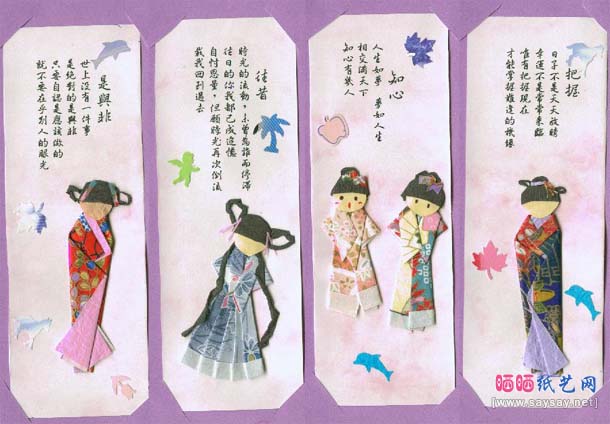 是與非
世上沒有一件事
是絕對的是與非
只要自認是應該做的
就不要在乎別人的眼光
往昔
時光的流動，未曾為誰而停滯
往日的你我都已成追憶
自忖思量，但願時光再次倒流
載我回到過去
知心
人生如夢 夢如人生
相交滿天下
知心有幾人
把握
日子不是天天放晴
幸運不是常常來臨
唯有把握現在
才能掌握難逢的機緣
晒晒纸艺网
[www.saysay.net]